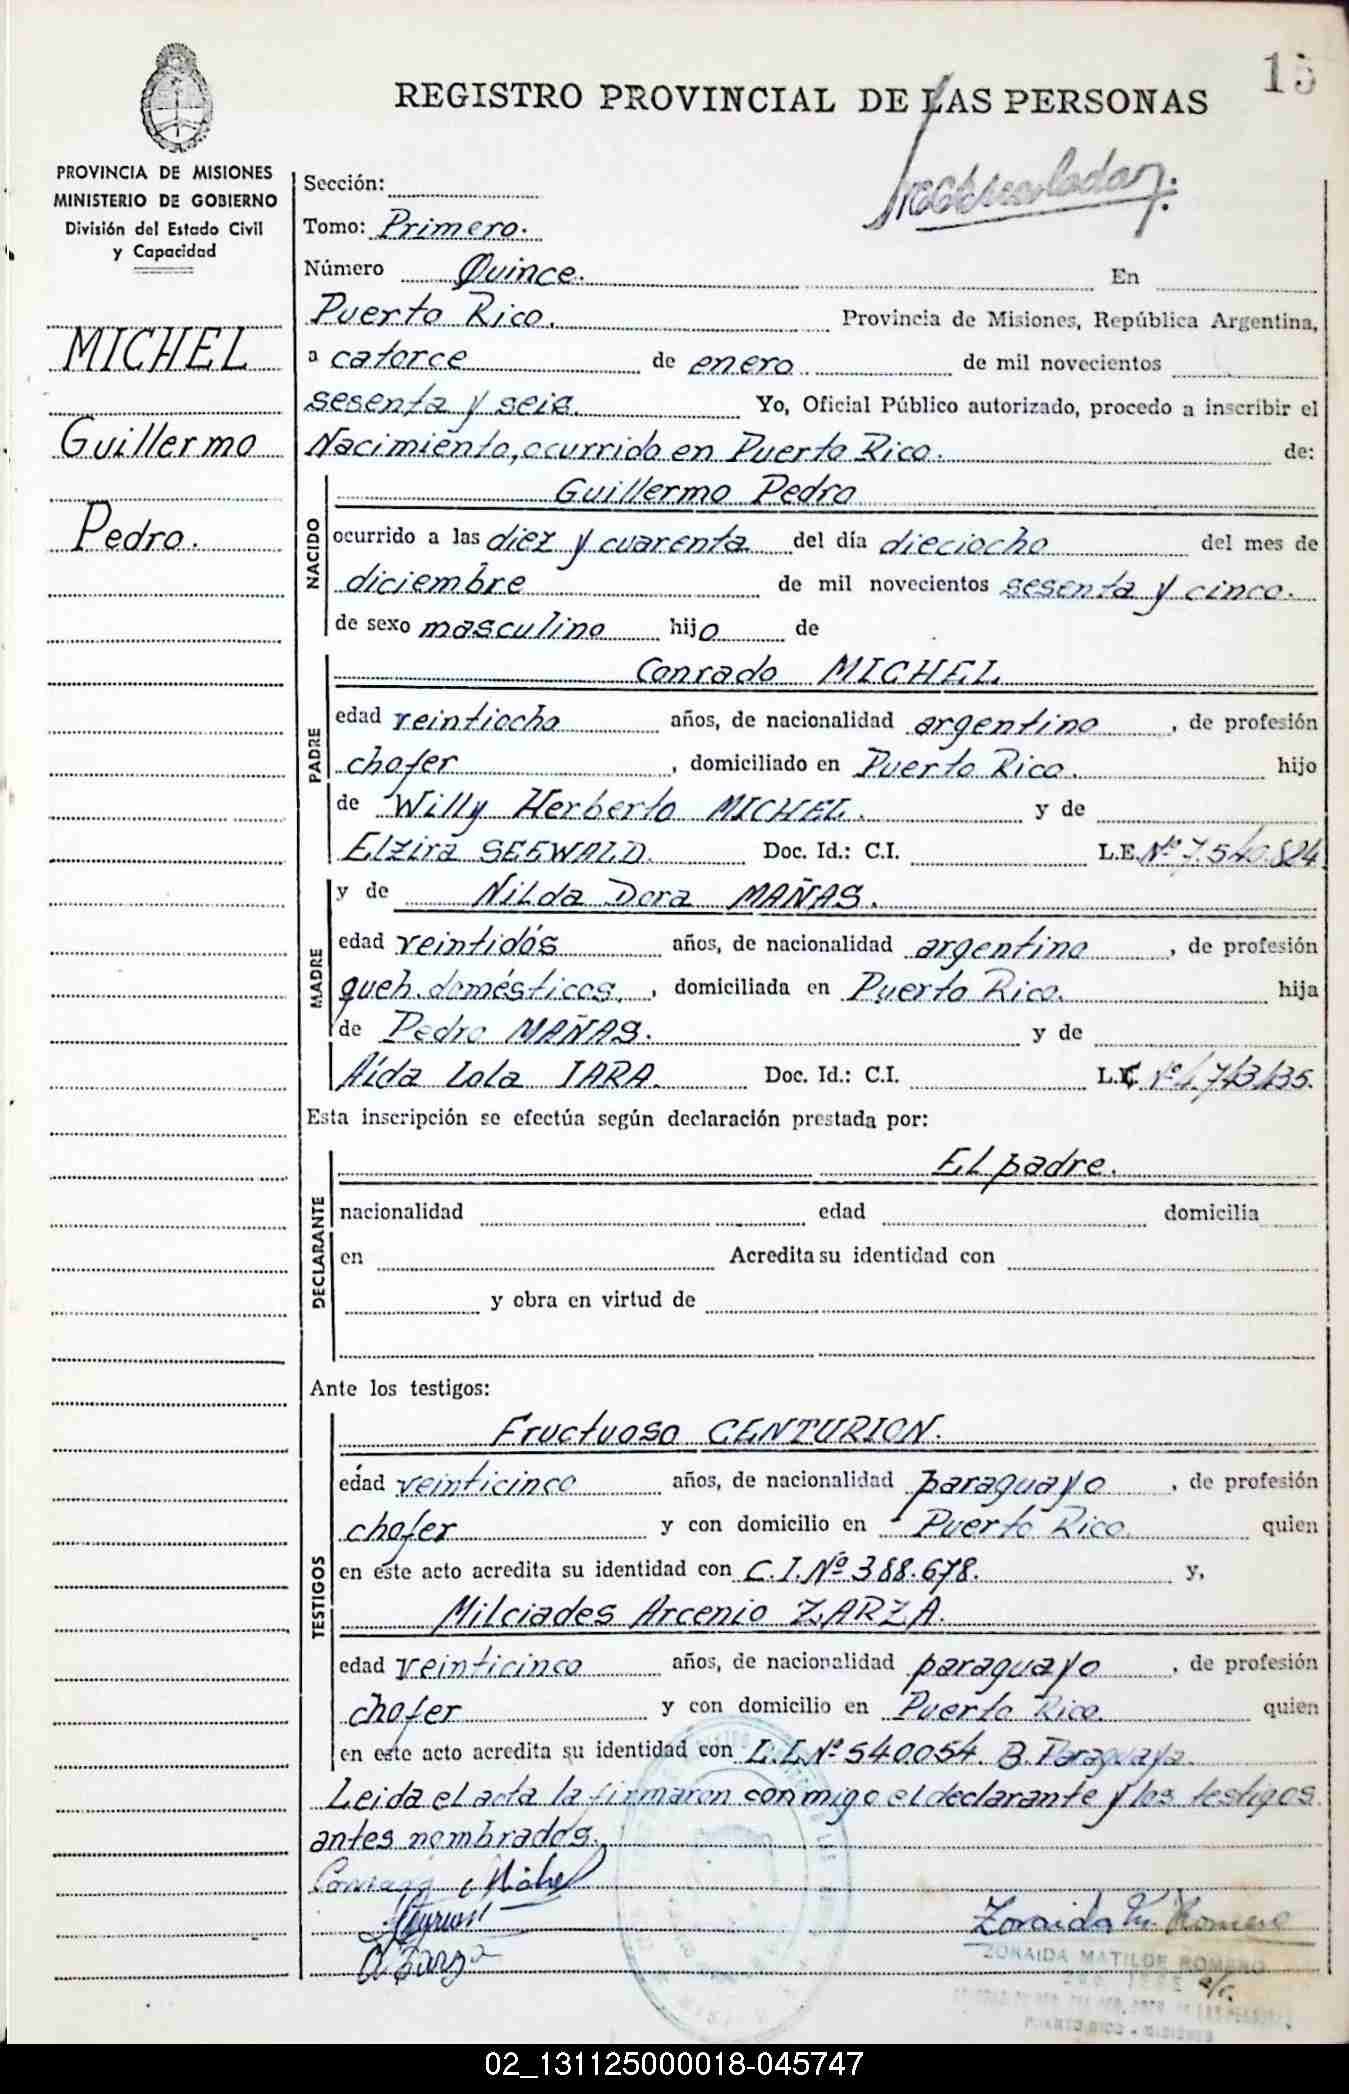 15
REGISTRO PROVINCIAL DE LAS PERSONAS
PROVINCIA DE MISIONES
MINISTERIO DE GOBIERNO
División del Estado Civil
y Capacidad
MICHEL
Guillermo
Pedro.
Sección:
Tomo: Primero.
Número Quince. En
Puerto Rico. Provincia de Misiones, República Argentina,
a catorce de enero de mil novecientos
sesenta y seis. Yo, Oficial Público autorizado, procedo a inscribir el
Nacimiento, ocurrido en Puerto Rico. de:
NACIDO
Guillermo Pedro
ocurrido a las diez y cuarenta del día dieciocho del mes de
diciembre de mil novecientos sesenta y cinco.
de sexo masculino hijo de
PADRE
Conrado MICHEL
edad veintiocho años, de nacionalidad argentino, de profesión
chofer, domiciliado en Puerto Rico. hijo
de Willy Herberto MICHEL. y de
Elzira SEEWALD. Doc. Id.: C.I. L.E. Nº 7.540.824
MADRE
y de Nilda Dora MAÑAS.
edad veintidós años, de nacionalidad argentina, de profesión
queh. domésticos., domiciliada en Puerto Rico. hija
de Pedro MAÑAS. y de
Aída Lola IARA. Doc. Id.: C.I. Nº
Esta inscripción se efectúa según declaración prestada por:
DECLARANTE
El padre.
nacionalidad edad domicilia
en Acredita su identidad con
y obra en virtud de
Ante los testigos:
TESTIGOS
Fructuoso CENTURION.
edad veinticinco años, de nacionalidad paraguayo, de profesión
chofer y con domicilio en Puerto Rico. quien
en este acto acredita su identidad con C.I. Nº 388.678. y,
Milciades Arcenio ZARZA.
edad veinticinco años, de nacionalidad paraguayo, de profesión
chofer y con domicilio en Puerto Rico. quien
en este acto acredita su identidad con Nº 540.054. Paraguaya.
Leida el acta la firmaron conmigo el declarante y los testigos
antes nombrados.
Conrado Michel
A Zarza
Zoraida M. Romero
ZORAIDA MATILDE ROMERO
PUERTO RICO - MISIONES
02_131125000018-045747